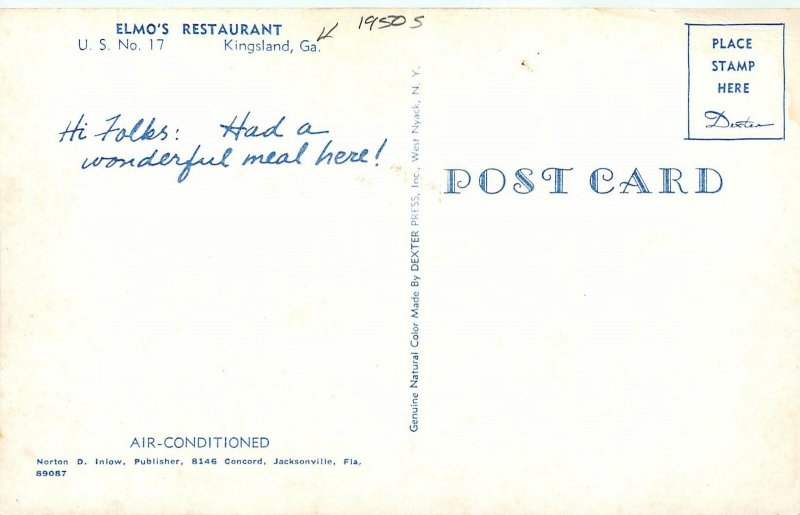 ELMO'S RESTAURANT
U. S. No. 17 Kingsland, Ga.
1950s
Hi Folks: Had a
wonderful meal here!
AIR-CONDITIONED
Norton D. Inlow, Publisher, 8146 Concord, Jacksonville, Fla.
89087
Genuine Natural Color Made By DEXTER PRESS, Inc., West Nyack, N. Y.
PLACE
STAMP
HERE
Dexter
POST CARD